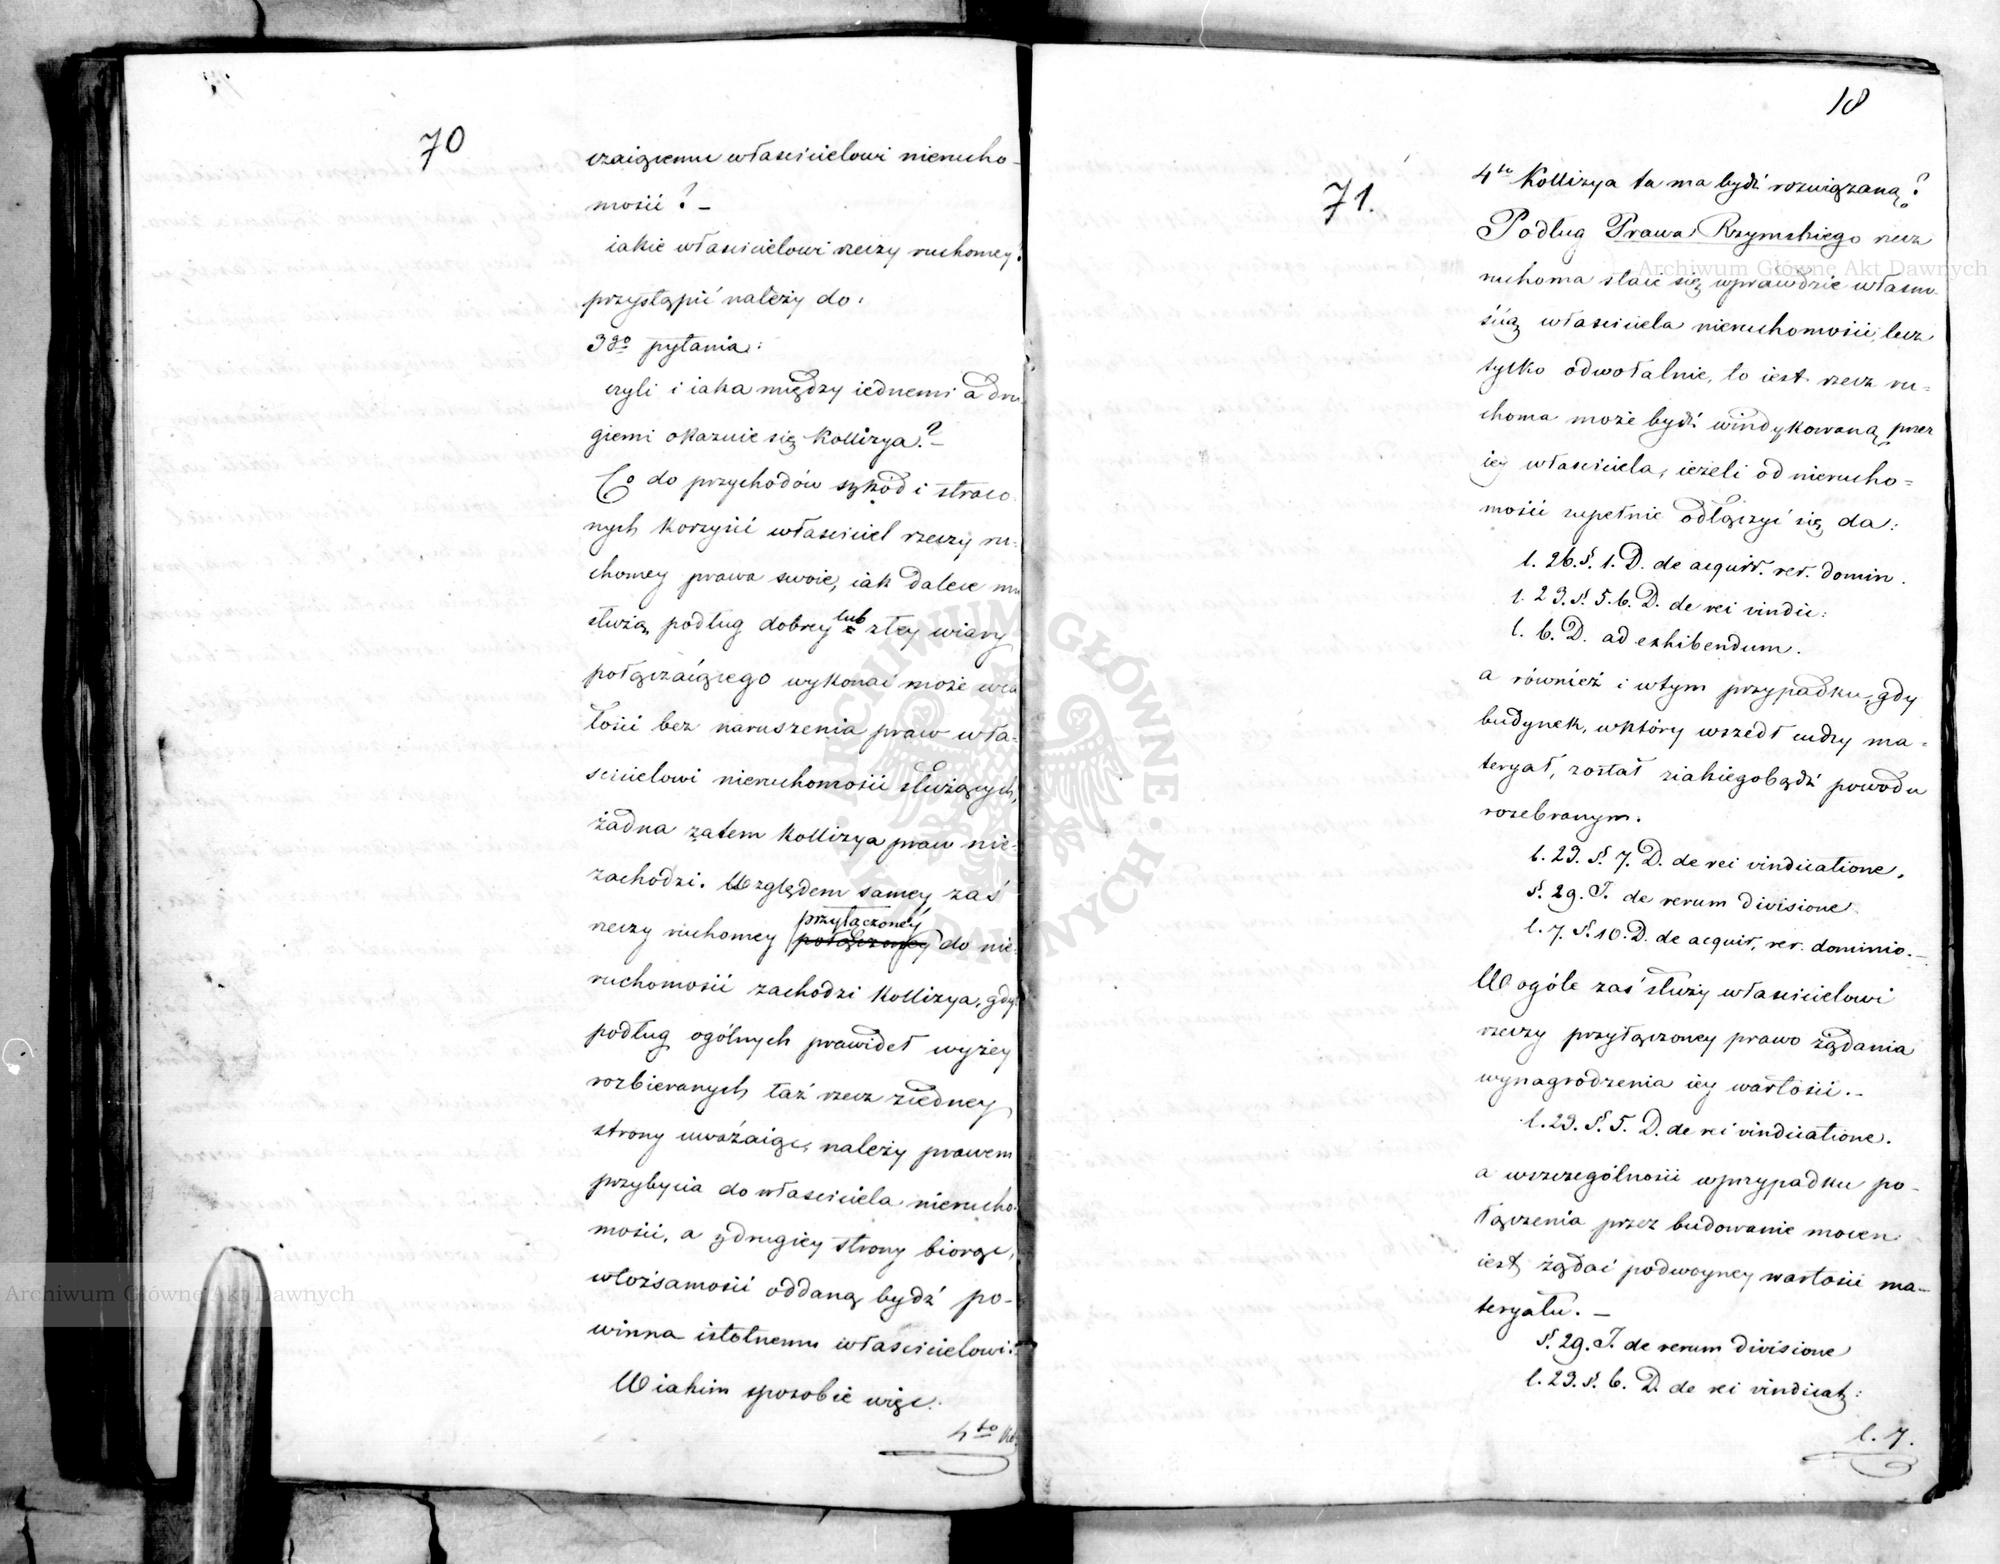 70
czaiącemu właścicielowi nierucho-
mości? –
iakie właścicielowi rzeczy ruchomey?
przystąpić należy do:
3go pytania:
czyli i iaka między iednemi a dru
giemi okazuie się Kollizya? –
Co do przychodów szkód i straco-
nych korzyści właściciel rzeczy ru-
chomey prawa swoie, iak dalece mu
służą podług dobrey lub złey wiary
połączaiącego wykonać może w ca
łości bez naruszenia praw wła-
ścicielowi nieruchomości służących,
żadna zatem Kollizya praw nie-
zachodzi. Względem samey zaś
przyłączoney
rzeczy ruchomey połączoney do nie-
ruchomości zachodzi Kollizya, gdyż
podług ogólnych prawideł wyżey
rozbieranych taż rzecz z iedney
strony uważaiąc, należy prawem
przybycia do właściciela nierucho-
mości, a z drugiey strony biorąc,
w tożsamości oddaną bydź po-
winna istotnemu właścicielowi.
W iakim sposobie więc:
4to Ko
18
71.
4to Kollizya ta ma bydź rozwiązaną?
Podług Prawa Rzymskiego rzecz
ruchoma staie się wprawdzie własno-
ścią właściciela nieruchomości, lecz
tylko odwołalnie, to iest rzecz ru-
choma może bydź windykowaną przez
iey właściciela, ieżeli od nierucho-
mości zupełnie odłączyć się da:
l. 26. §. 1. D. de acquir. rer. domin.
l. 23. §. 5. 6. D. de rei vindic:
l. 6. D. ad exhibendum.
a również i w tym przypadku, gdy
budynek, w który wszedł cudzy ma-
teryał, został z iakiegobądź powodu
rozebranym.
l. 23. §. 7. D. de rei vindicatione.
§. 29. I. de rerum divisione
l. 7. §. 10. D. de acquir. rer. dominio. –
W ogóle zaś służy właścicielowi
rzeczy przyłączoney prawo żądania
wynagrodzenia iey wartości. –
l. 23. §. 5. D. de rei vindicatione.
a w szczególności w przypadku po-
łączenia przez budowanie mocen
iest żądać podwoyney wartości ma-
teryału. –
§. 29. I. de rerum divisione
l. 23. §. 6. D. de rei vindicat:
l. 7.
Archiwum Główne Akt Dawnych
Archiwum Główne Akt Dawnych
ARCHIWUM GŁÓWNE AKT DAWNYCH